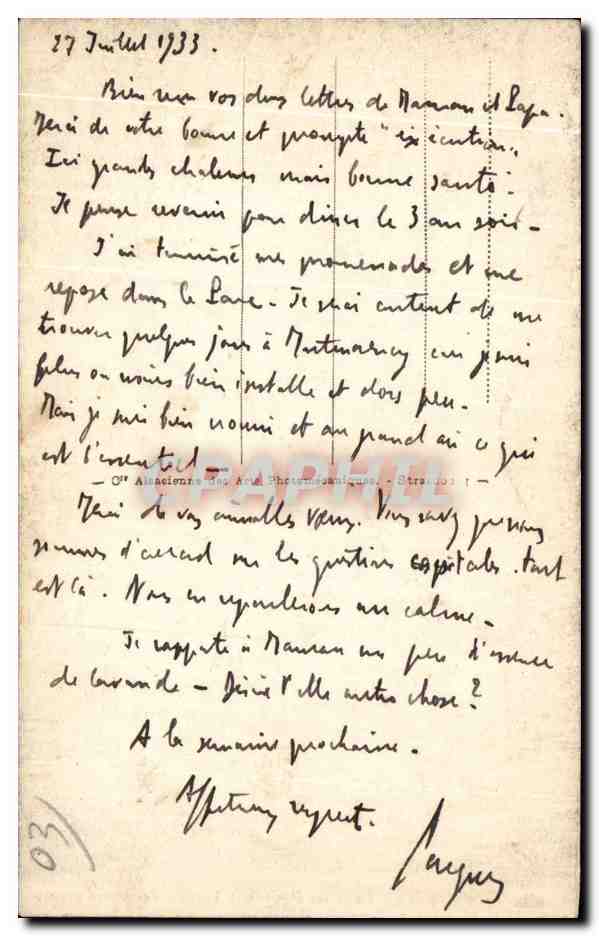 27 Juillet 1933.
Bien reçu vos deux lettres de Maman et Papa.
Merci de votre bonne et prompte "exécution".
Ici grandes chaleurs mais bonne santé.
Je pense revenir pour diner le 3 au soir -
J'ai terminé mes promenades et me
repose dans le Parc - Je suis content de me
trouver quelques jours à car je suis
plus ou moins bien installé et dors peu.
Mais je suis bien nourri et au grand air ce qui
est l'essentiel -
- Cie Alsacienne des Arts Photomécaniques. - Strasbourg -
CPAPHIL
Merci de vos Vous savez que nous
sommes d'accord sur les questions capitales. tout
est là. Nous en reparlerons au calme -
Je rapporte à Maman un peu d'essence
de lavande - Désire t'elle autre chose?
A la semaine prochaine.
Affectueux respects.
Jacques
03